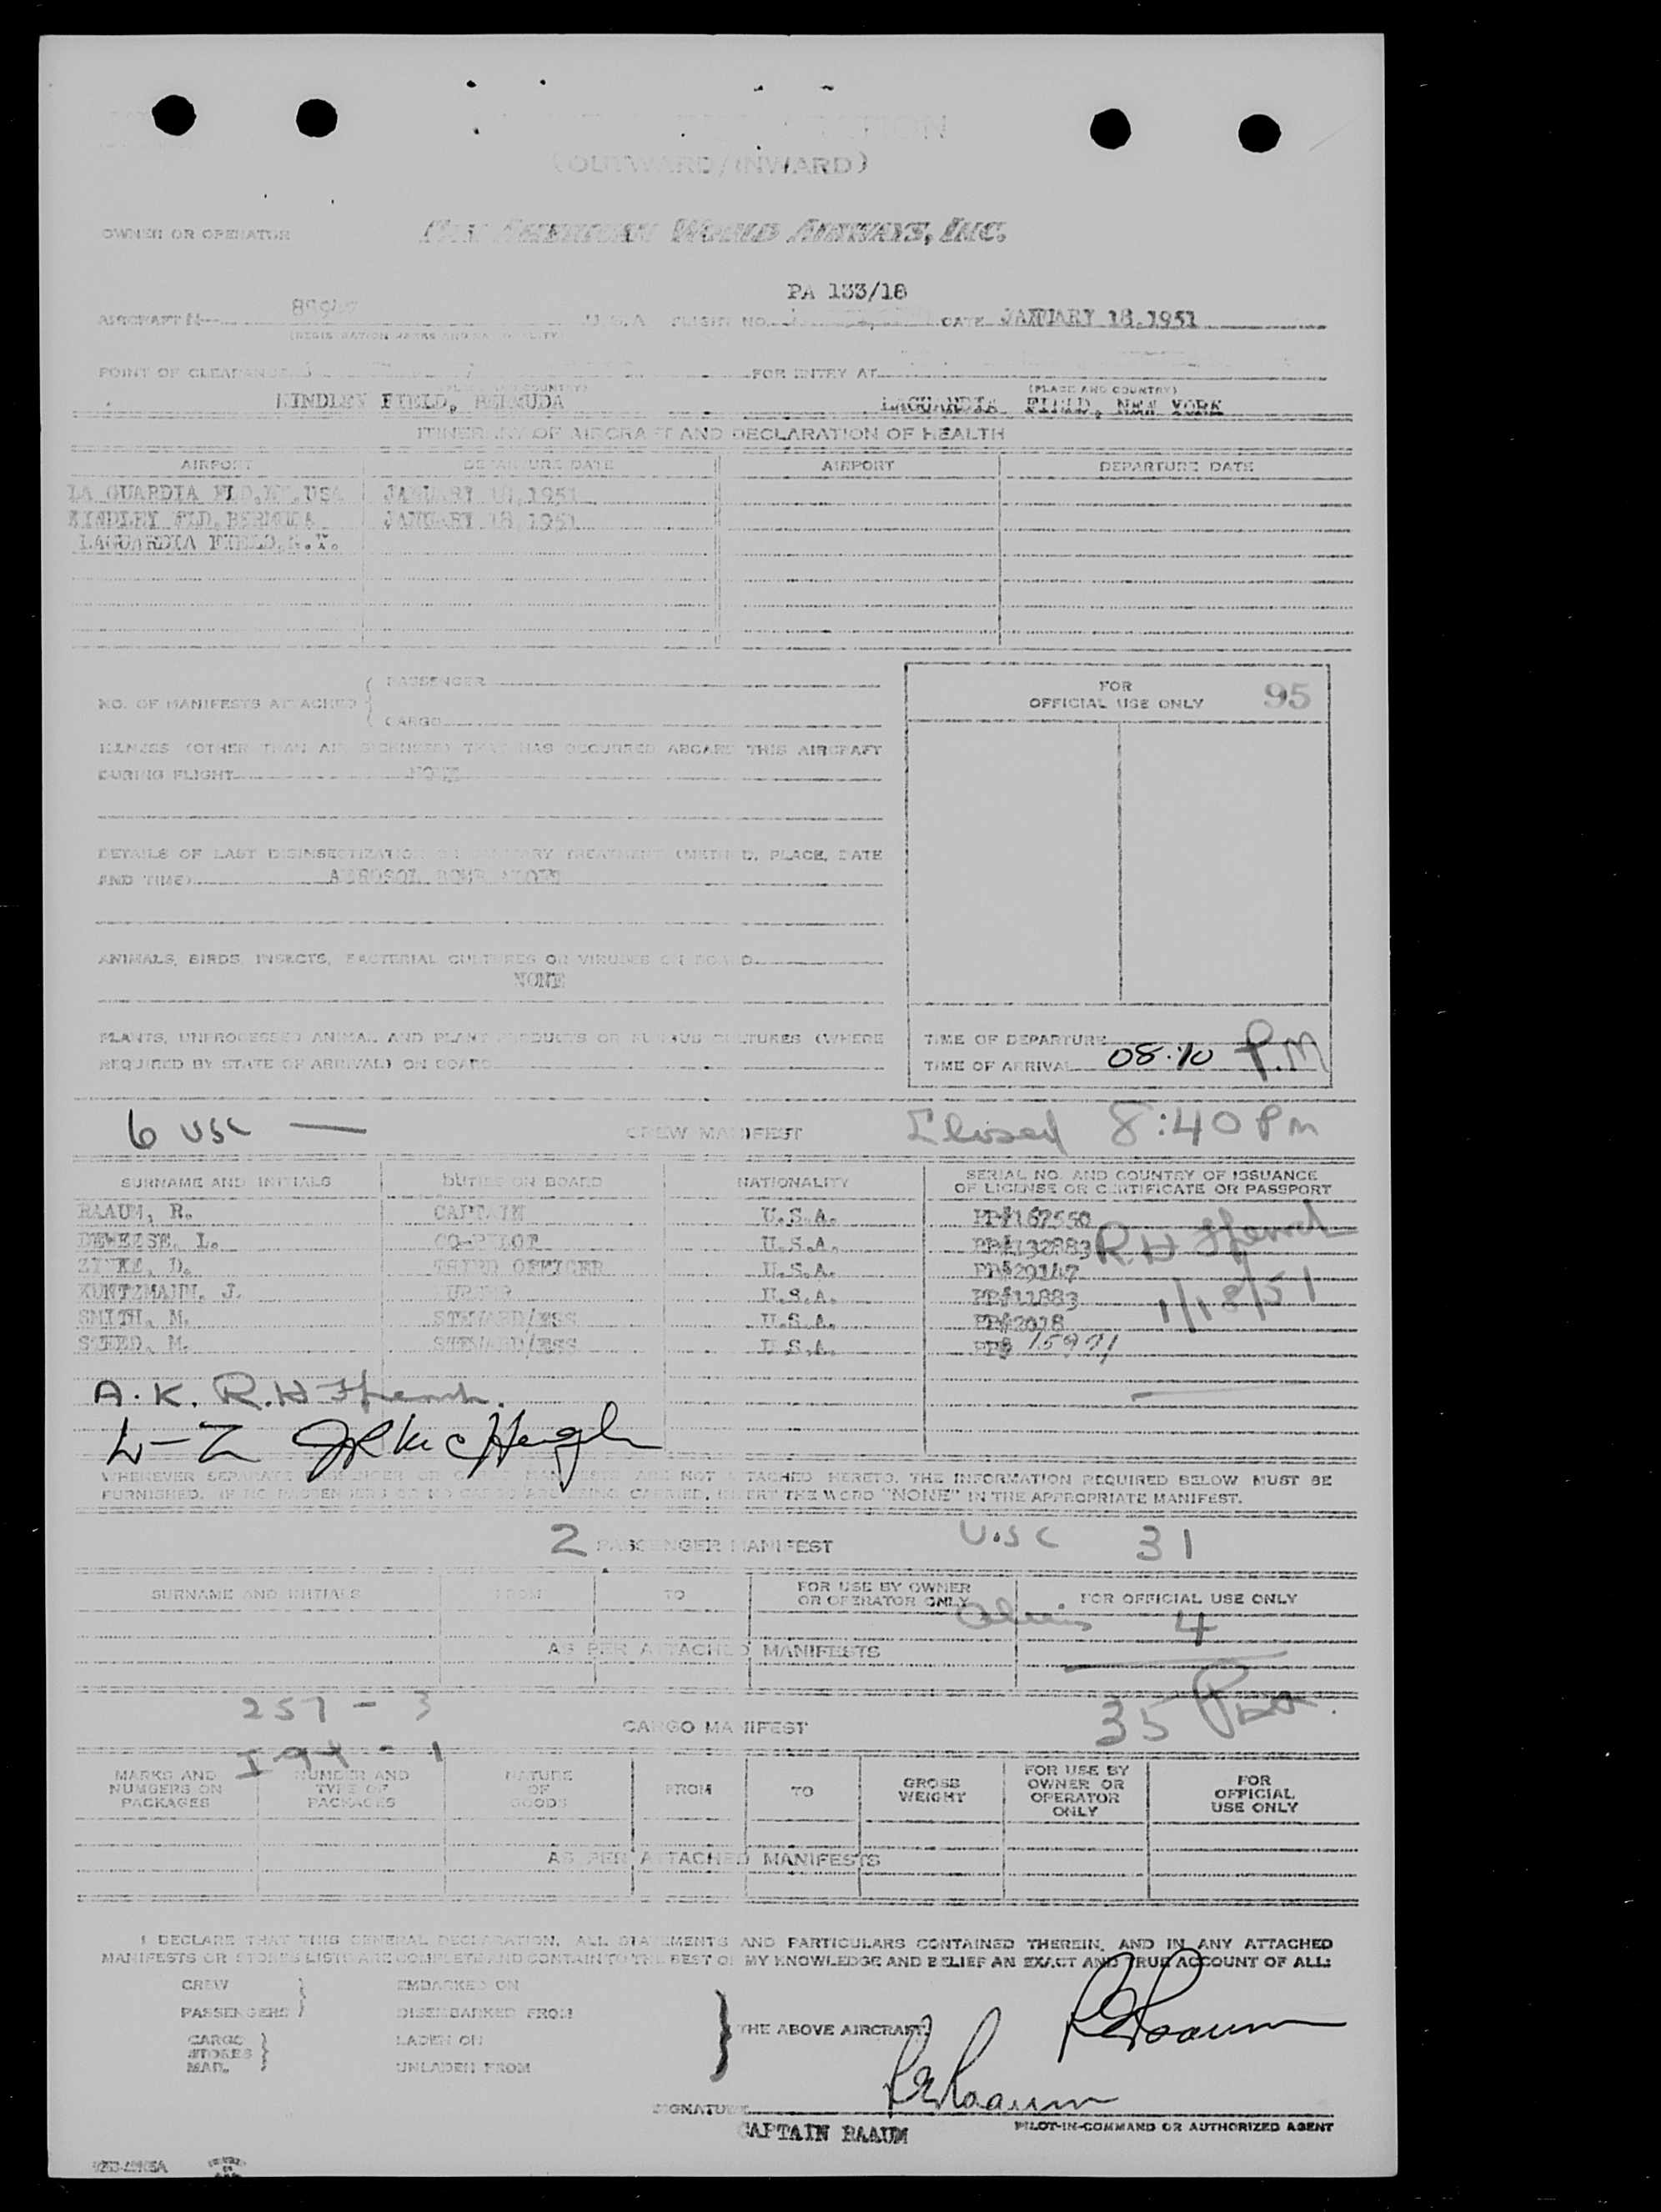 (OUTWARD/INWARD)
OWNER OR OPERATOR PAN AMERICAN WORLD AIRWAYS, INC.
PA 133/18
AIRCRAFT U.S.A. FLIGHT NO. DATE JANUARY 18, 1951
(REGISTRATION MARKS AND NATIONALITY)
POINT OF CLEARANCE FOR ENTRY AT
(PLACE AND COUNTRY) (PLACE AND COUNTRY)
KINDLEY FIELD, BERMUDA LAGUARDIA FIELD, NEW YORK
ITINERARY OF AIRCRAFT AND DECLARATION OF HEALTH
AIRPORT DEPARTURE DATE AIRPORT DEPARTURE DATE
LA GUARDIA FLD, NY, USA JANUARY 1951
KINDLEY FLD, BERMUDA JANUARY 18 1951
LAGUARDIA FIELD, N.Y.
PASSENGER
NO. OF MANIFESTS ATTACHED
CARGO
FOR
OFFICIAL USE ONLY 95
ILLNESS (OTHER THAN AIR SICKNESS) THAT HAS OCCURRED ABOARD THIS AIRCRAFT
DURING FLIGHT NONE
DETAILS OF LAST DISINSECTIZATION OR SANITARY TREATMENT (METHOD, PLACE, DATE
AND TIME) AEROSOL BOMB
ANIMALS, BIRDS, INSECTS, BACTERIAL CULTURES OR VIRUSES ON BOARD
NONE
PLANTS, UNPROCESSED ANIMAL AND PLANT PRODUCTS OR FUNGUS CULTURES (WHERE
REQUIRED BY STATE OF ARRIVAL) ON BOARD
TIME OF DEPARTURE
TIME OF ARRIVAL 08:10 P.M
6 USC — CREW MANIFEST Closed 8:40 PM
SURNAME AND INITIALS DUTIES ON BOARD NATIONALITY SERIAL NO. AND COUNTRY OF ISSUANCE
OF LICENSE OR CERTIFICATE OR PASSPORT
RAAUM, R. CAPTAIN U.S.A. PP#167550
DEWEESE, L. CO-PILOT U.S.A. PP#132883
ZITKE, D. THIRD OFFICER U.S.A. PP#29147
KUNTZMANN, J. PURSER U.S.A. PP#11883
SMITH, M. STEWARD/ESS U.S.A. PP#2018
STEED, M. STEWARD/ESS U.S.A. PP# 15971
R H
1/18/51
A.K. R.H
L-Z McHugh
WHENEVER SEPARATE PASSENGER OR CARGO MANIFESTS ARE NOT ATTACHED HERETO, THE INFORMATION REQUIRED BELOW MUST BE
FURNISHED. IF NO PASSENGERS OR NO CARGO ARE BEING CARRIED, INSERT THE WORD "NONE" IN THE APPROPRIATE MANIFEST.
2 PASSENGER MANIFEST U.S.C 31
SURNAME AND INITIALS FROM TO FOR USE BY OWNER
OR OPERATOR ONLY FOR OFFICIAL USE ONLY
4
AS PER ATTACHED MANIFESTS
257 - 3 35
CARGO MANIFEST
I 94 - 1
MARKS AND
NUMBERS ON
PACKAGES NUMBER AND
TYPE OF
PACKAGES NATURE
OF
GOODS FROM TO GROSS
WEIGHT FOR USE BY
OWNER OR
OPERATOR
ONLY FOR
OFFICIAL
USE ONLY
AS PER ATTACHED MANIFESTS
I DECLARE THAT THIS GENERAL DECLARATION, ALL STATEMENTS AND PARTICULARS CONTAINED THEREIN, AND IN ANY ATTACHED
MANIFESTS OR STORES LISTS ARE COMPLETE AND CONTAIN TO THE BEST OF MY KNOWLEDGE AND BELIEF AN EXACT AND TRUE ACCOUNT OF ALL:
CREW EMBARKED ON
PASSENGERS DISEMBARKED FROM
CARGO LADEN ON THE ABOVE AIRCRAFT
STORES
MAIL UNLADEN FROM
RERaaum
RERaaum
SIGNATURE
CAPTAIN RAAUM PILOT-IN-COMMAND OR AUTHORIZED AGENT